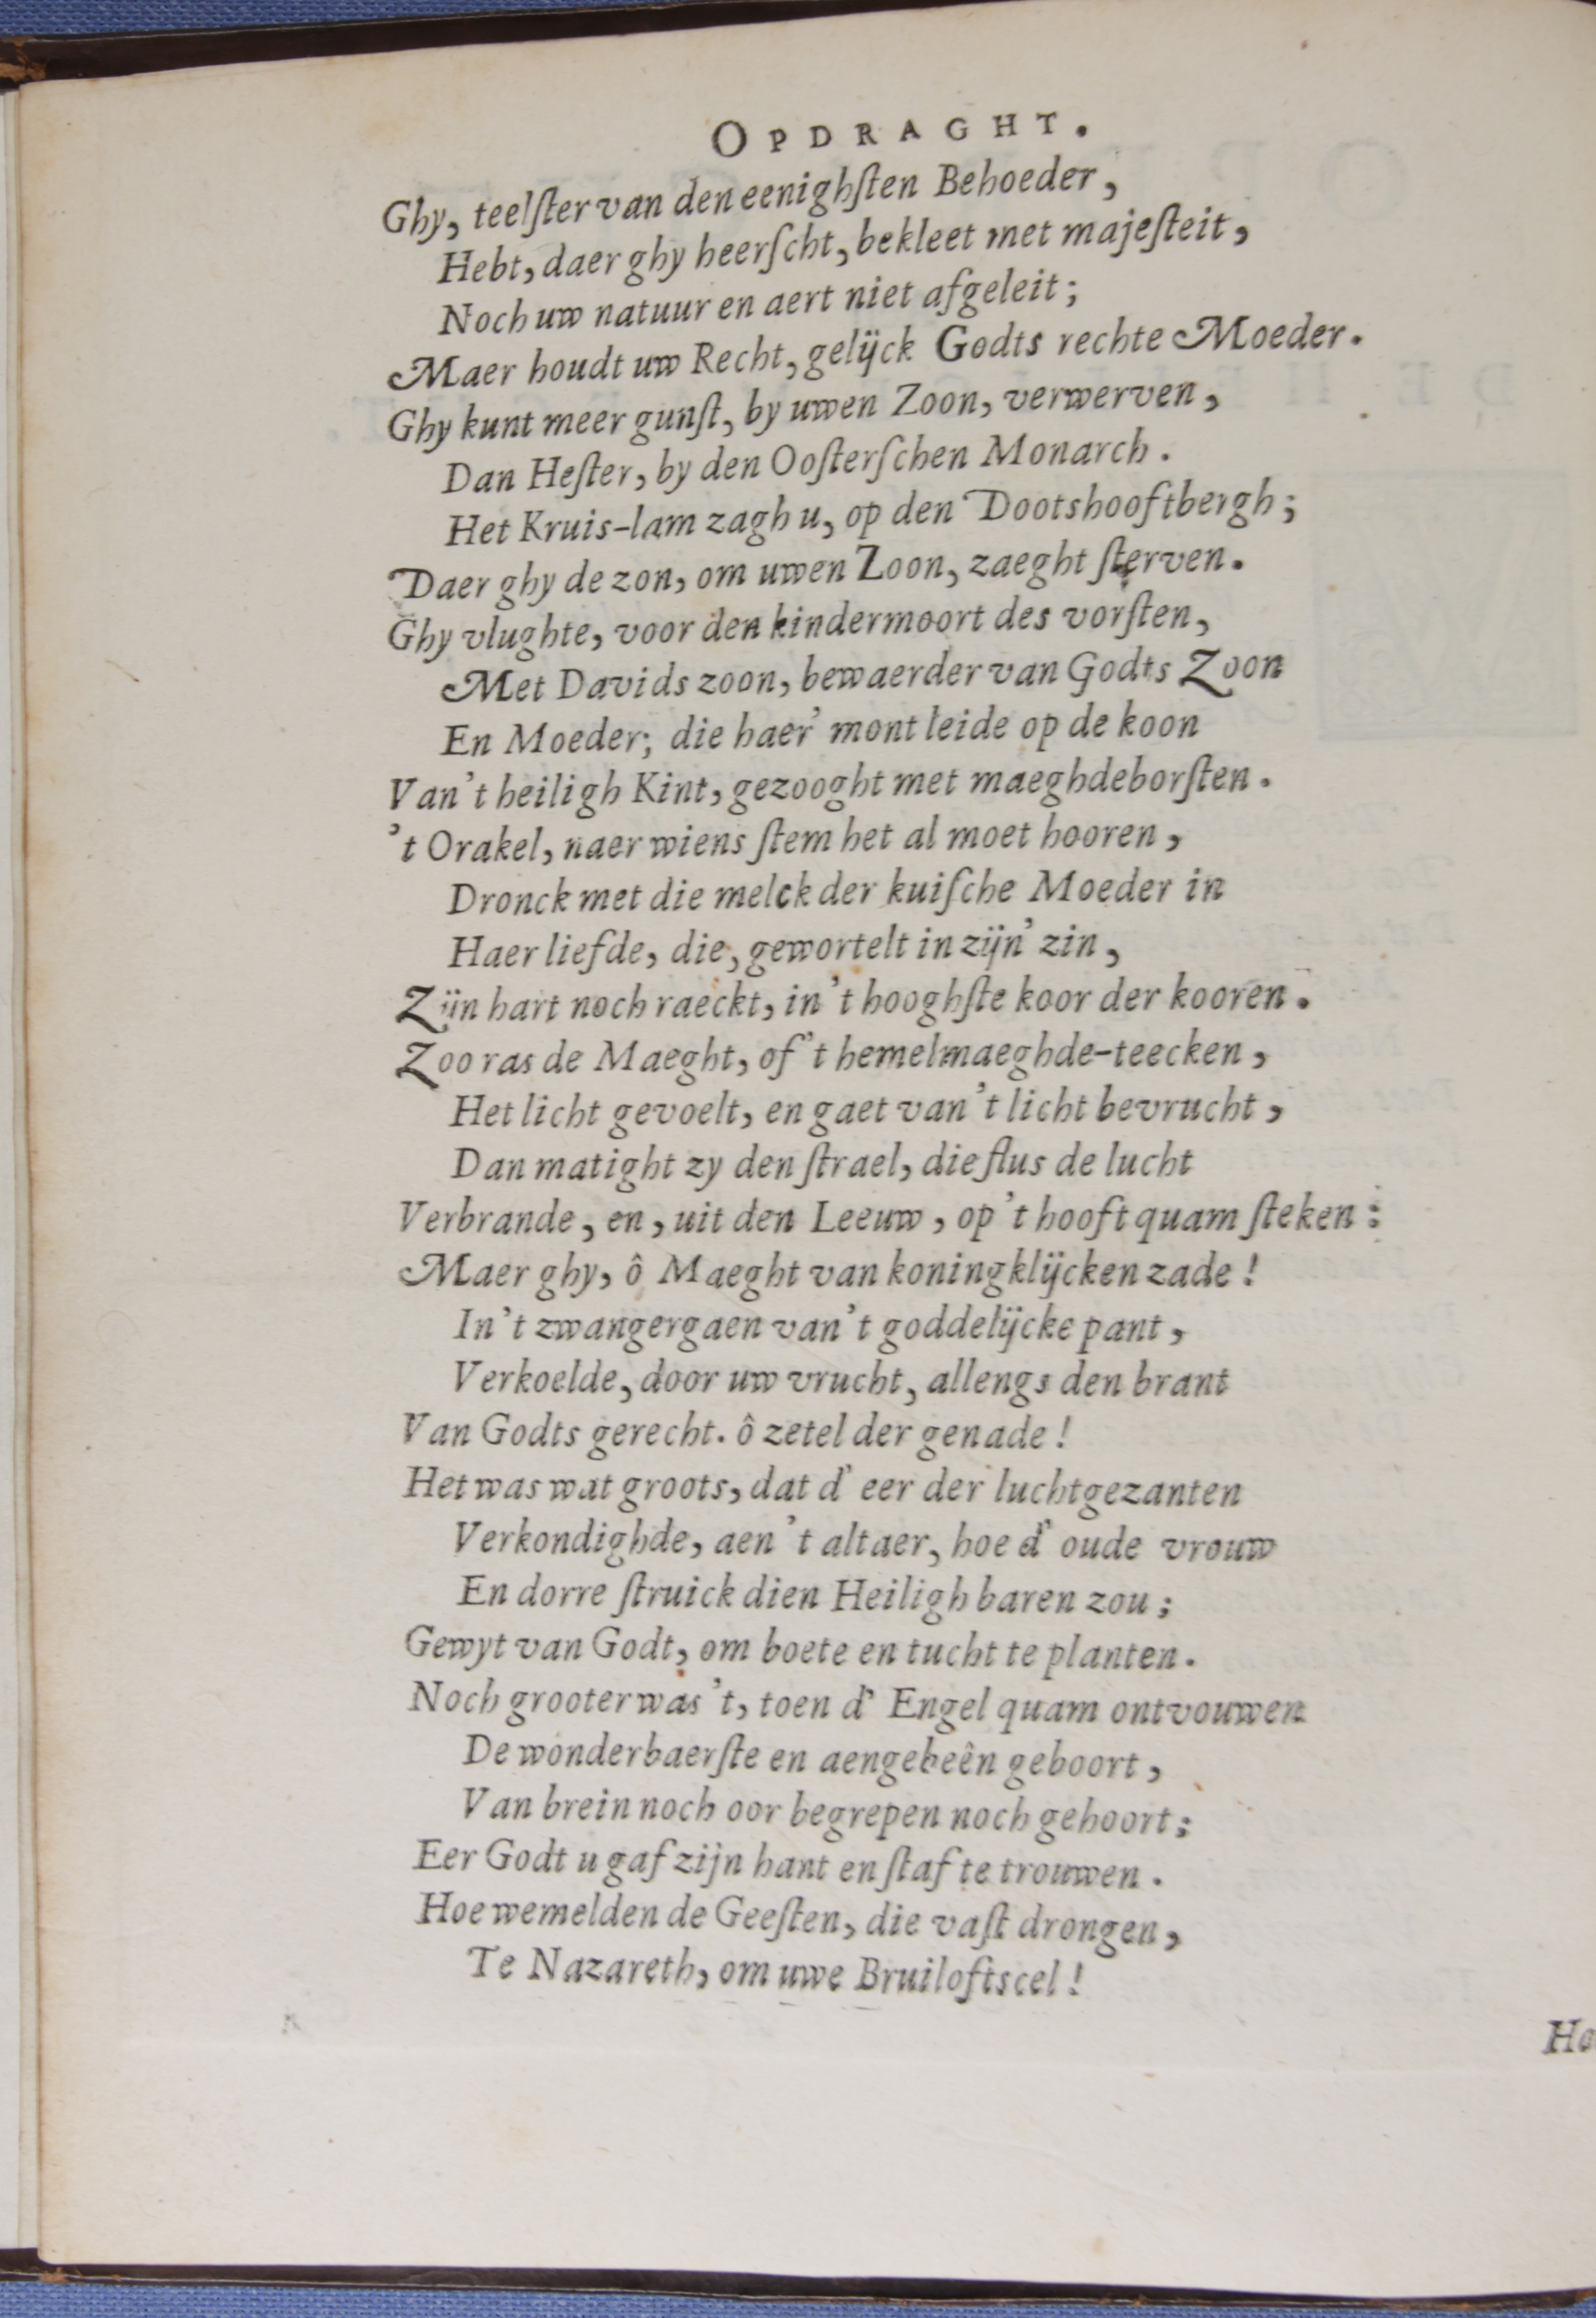 OPDRAGHT.
Ghy, teelſter van den eenighſten Behoeder,
Hebt, daer ghy heerſcht, bekleet met majeſteit,
Noch uw natuur en aert niet afgeleit;
Maer houdt uw Recht, gelijck Godts rechte Moeder.
Ghy kunt meer gunſt, by uwen Zoon, verwerven,
Dan Heſter, by den Ooſterſchen Monarch.
Het Kruis-lam zagh u, op den Dootshooftbergh;
Daer ghy de zon, om uwen Zoon, zaeght ſterven.
Ghy vlughte, voor den kindermoort des vorſten,
Met Davids zoon, bewaerder van Godts Zoon
En Moeder; die haer' mont leide op de koon
Van 't heiligh Kint, gezooght met maeghdeborſten.
't Orakel, naer wiens ſtem het al moet hooren,
Dronck met die melck der kuiſche Moeder in
Haer liefde, die, gewortelt in zijn' zin,
Zijn hart noch raeckt, in 't hooghſte koor der kooren.
Zoo ras de Maeght, of 't hemelmaeghde-teecken,
Het licht gevoelt, en gaet van 't licht bevrucht,
Dan matight zy den ſtrael, die flus de lucht
Verbrande, en, uit den Leeuw, op 't hooft quam ſteken:
Maer ghy, ô Maeght van koningklijcken zade!
In 't zwangergaen van 't goddelijcke pant,
Verkoelde, door uw vrucht, allengs den brant
Van Godts gerecht. ô zetel der genade!
Het was wat groots, dat d' eer der luchtgezanten
Verkondighde, aen 't altaer, hoe d' oude vrouw
En dorre ſtruick dien Heiligh baren zou;
Gewyt van Godt, om boete en tucht te planten.
Noch grooter was 't, toen d' Engel quam ontvouwen
De wonderbaerſte en aengebeên geboort,
Van brein noch oor begrepen noch gehoort;
Eer Godt u gaf zijn hant en ſtaf te trouwen.
Hoe wemelden de Geeſten, die vaſt drongen,
Te Nazareth, om uwe Bruiloftscel!